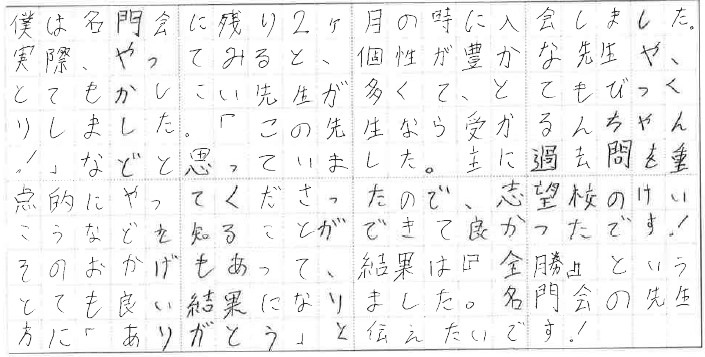 僕は名門会に残り2ヶ月の時に入会しました。
実際、やってみると、個性が豊かな先生や、
とてもかしこい先生が多くて、とてもびっく
りしました。「この先生なら受かるんちゃん
!」などと思っていました。主に過去問を重
点的にやってくださったので、志望校のけい
こうなどを知ることができて良かったです!
そのおかげもあって、結果は『全勝』という
とても良い結果になりました。名門会の先生
方に「ありがとう」と伝えたいです!